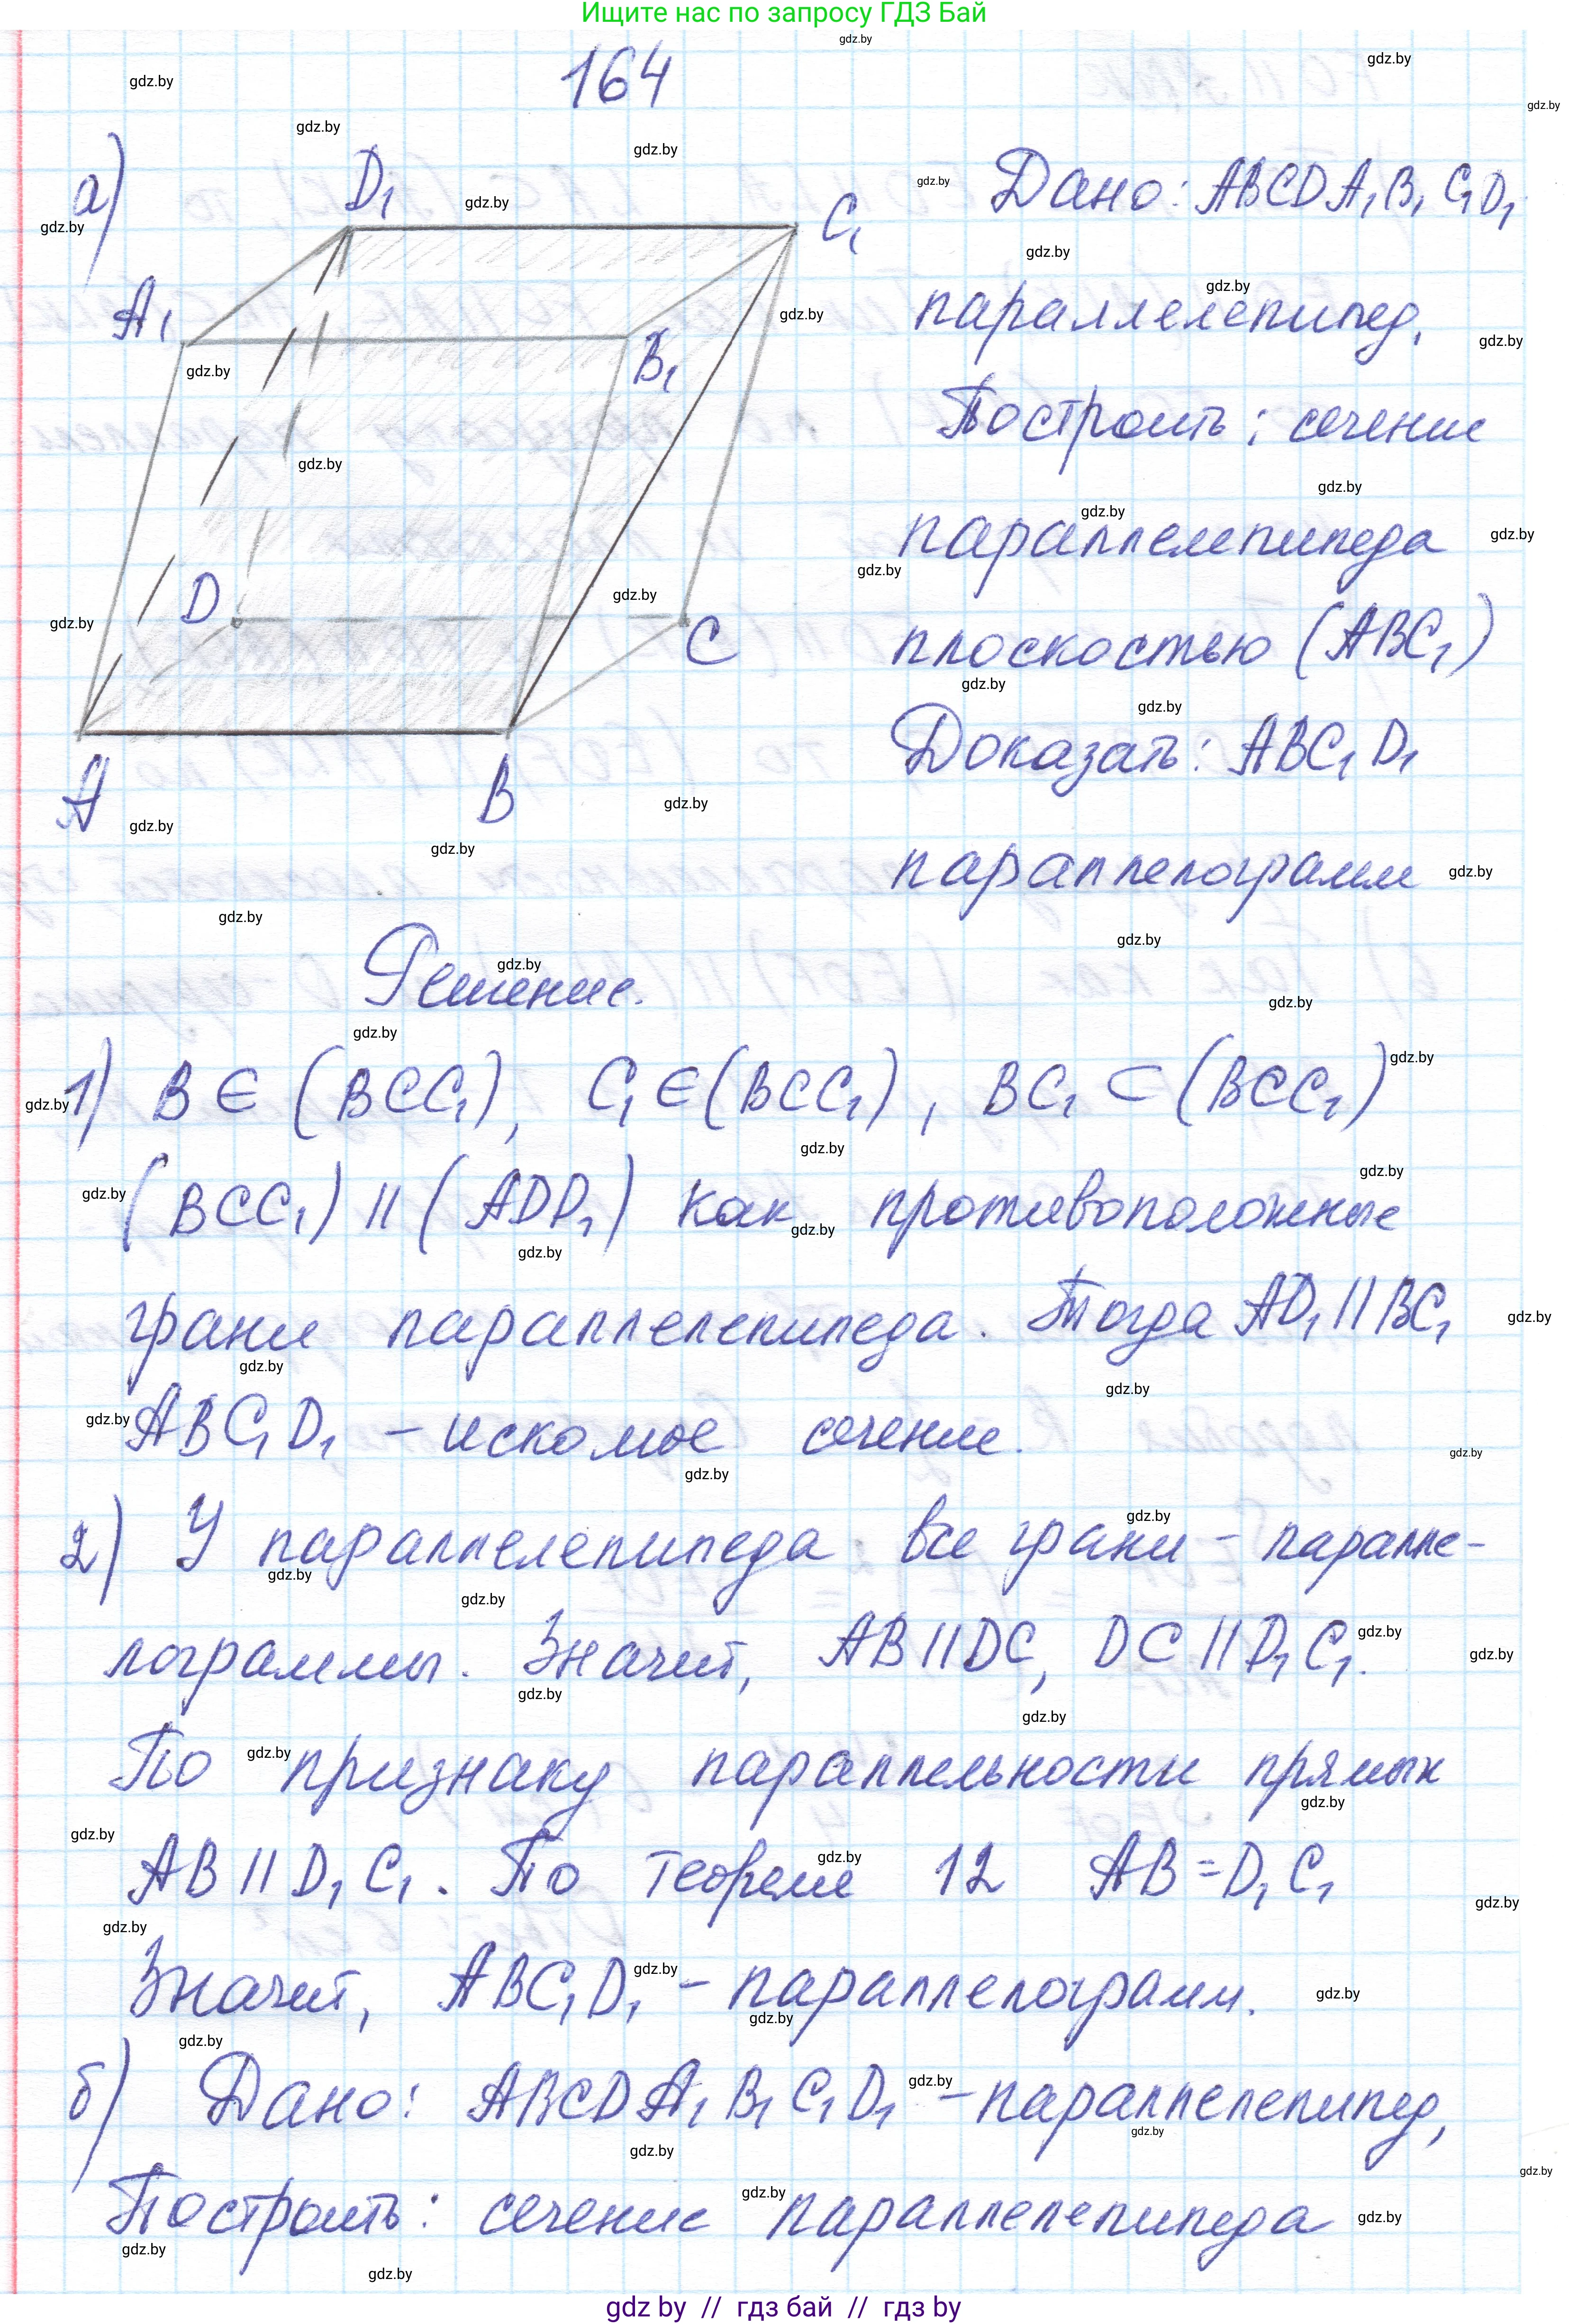 Ищите нас по запросу ГДЗ Бай
164
а)
D₁
C₁
A₁
B₁
D
C
A
B
Дано: ABCDA₁B₁C₁D₁
параллелепипед.
Построить: сечение
параллелепипеда
плоскостью (ABC₁)
Доказать: ABC₁D₁
параллелограмм
Решение.
1) B ∈ (BCC₁), C₁ ∈ (BCC₁), BC₁ ⊂ (BCC₁)
(BCC₁) || (ADD₁) как противоположные
грани параллелепипеда. Тогда AD₁ || BC₁
ABC₁D₁ – искомое сечение.
2) У параллелепипеда все грани – паралле-
лограммы. Значит, AB || DC, DC || D₁C₁.
По признаку параллельности прямых
AB || D₁C₁. По теореме 12 AB = D₁C₁
Значит, ABC₁D₁ – параллелограмм.
б) Дано: ABCDA₁B₁C₁D₁ – параллелепипед,
Построить: сечение параллелепипеда
gdz by // гдз бай // гдз by